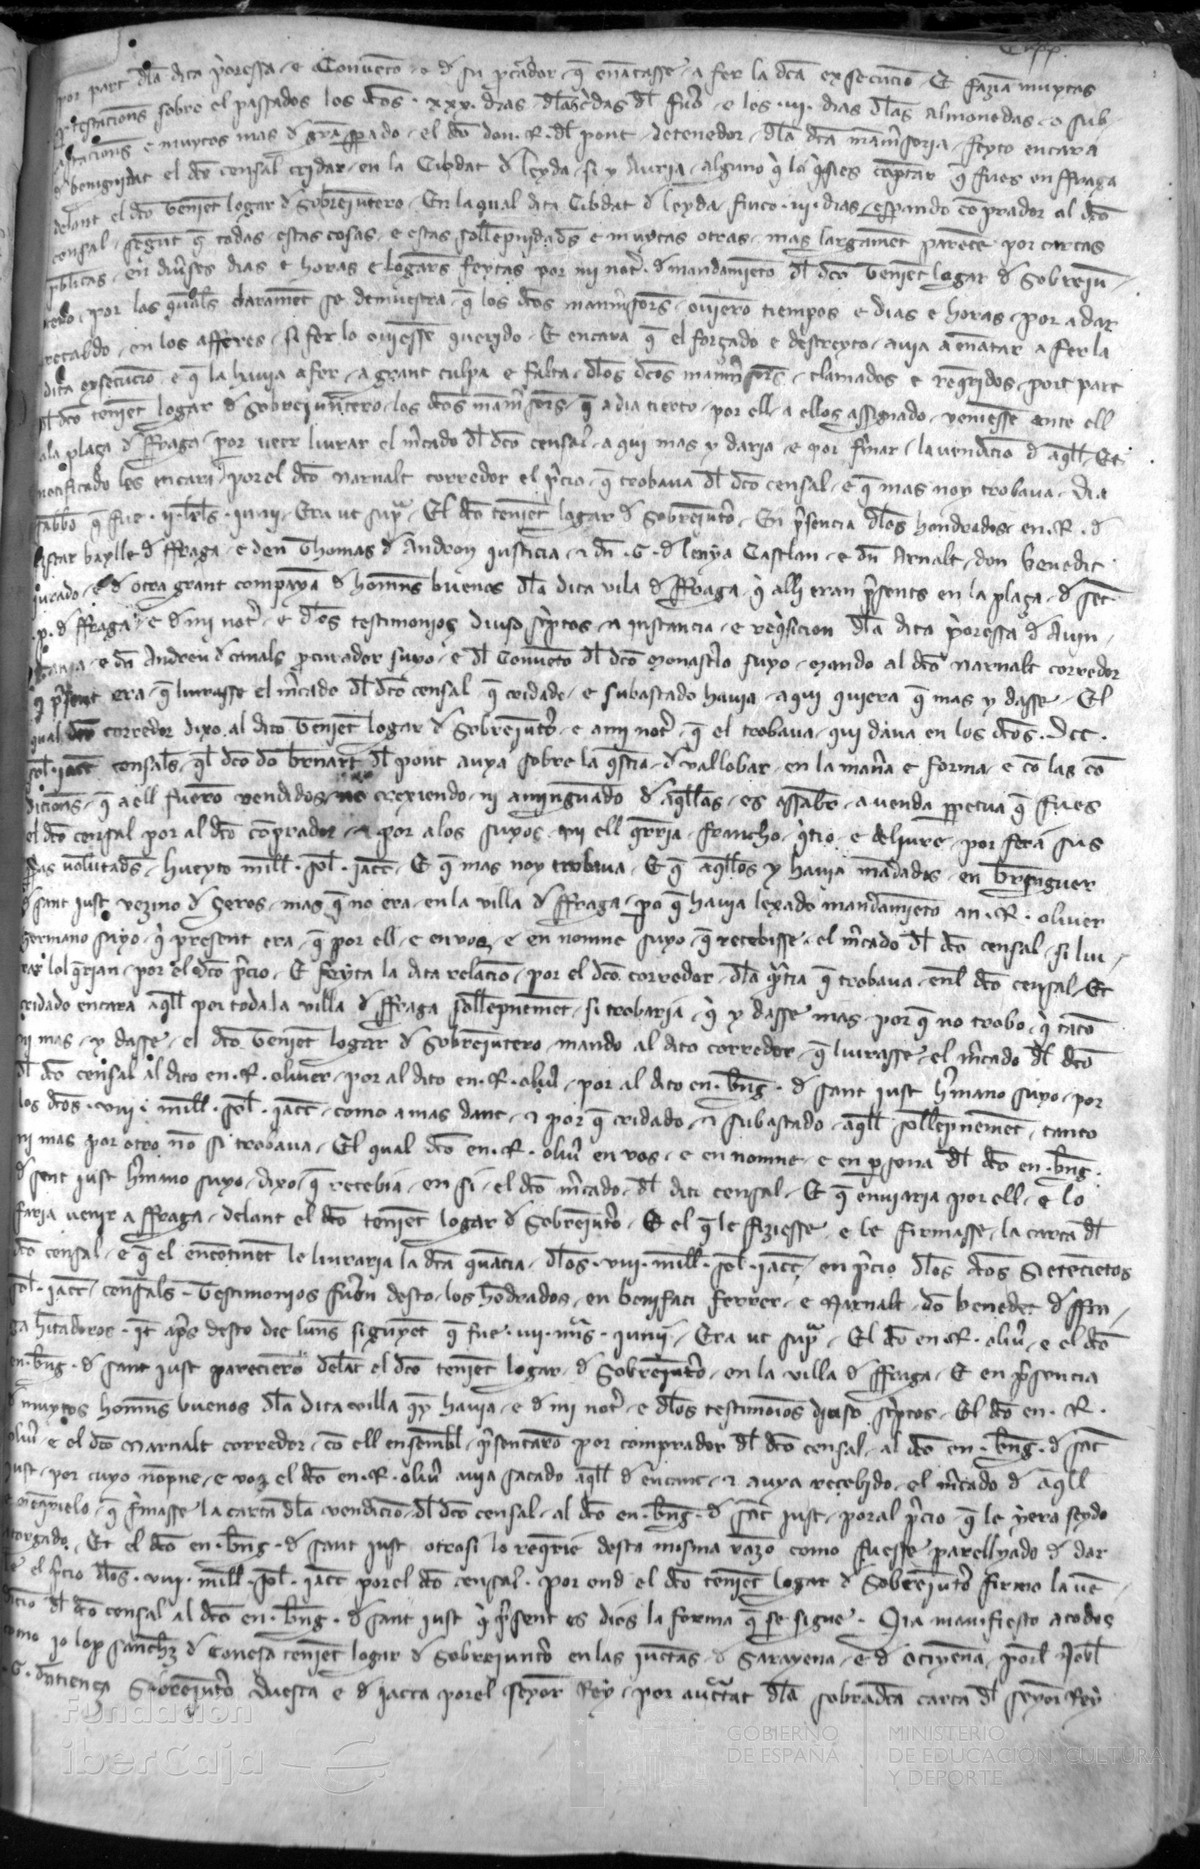 por part dla dita pioressa e Convento o d su pcador q enantasse a fer la dca exsecucio Et fazia muytas
testacions sobre el passados los dcos xxx dias dl fuo e los iii dias dlas almonedas e sub
astacions e muytos mas d gra el dco don R dl pont detenedor dla dca feyto encara
benignitat el dco censal cridar en la Cibdat d leyda si y auria alguno q lo qsies comptar q fues en ffraga
delant el dco tenient logar d Sobreiuntero En la qual dita Cibdat d leyda finco iii dias espando coprador al dco
censal segunt q todas estas cosas e estas sollepnidads e muytas otras mas largament parexe por cartas
publicas en diuses dias e horas e logars feytas por mi not d mandamieto dl dco tenient logar d Sobreiun
tero por las quals clarament se demuestra q los dcos manussors ouiero tiempos e dias e horas por a dar
recabdo en los afferes si fer lo ouiesse querido Et encara q el forçado e destreyto auia a enatar a fer la
dita exsecucio e q la hauia a fer a grant culpa e falta dlos dcos clamados e reqridos port part
dl dco tenient logar d Sobreiuntero los dcos q a dia cierto por ell a ellos assignado veniesse ante ell
ala plaça d ffraga por ueer liurar el mcado dl dco censal a qui mas y daria e por fmar la vendicio d aqll Et
notificado les encara por el dco Narnalt corredor el pcio q trobaua dl dco censal e q mas noy trobaua dia
sabbo q fue iunii Era ut supa El dco tenient logar d Sobreiuto En psencia dlos hondrados en R d
baylle d ffraga e den Thomas d Andron iusticia e dn G d lenya Castlan e dn Arnalt don benedit
iurado e d otra grant compaya d homns buenos dla dita vila d ffraga q alli eran psents en la plaça d sent
p d ffraga e d mi not e dlos testimonios diuso scptos a instancia e reqsicion dla dita pioressa d
e dn Andreu d canals pcurador suyo e dl Conueto dl dco monasterio suyo mando al dco Narnalt corredor
q psent era q liurasse el mcado dl dco censal q cridado e subastado hauia a qui quiera q mas y dasse El
qual dco corredor dixo al dito tenient logar d Sobreiuto e a mi not q el trobaua qui daua en los dcos dcc
sol iacc censals ql dco do bnart dl pont auya sobre la d vallobar en la manera e forma e co las co
dicions q a ell fuero vendidos no crexiendo ni aminguado d aqllas es assabe a uenda ppetua q fues
el dco censal por al dco coprador e por a los suyos francho qtio e deliure por fer a sus
ppas volutads hueyto mill sol iacc E q mas noy trobaua E q aqllos y hauia madados en breguer
d sant iust vezino d Seros mas q no era en la villa d ffraga po q hauia lexado mandamiento an R oliuer
hermano suyo q present era q por ell e en voz e en nomne suyo q recebisse el mcado dl dco censal si liu
rar lol qrian por el dco pcio E feyta la dita relacio por el dco corredor dla qtia q trobaua enl dco censal Et
cridado encara aqll por toda la villa d ffraga sollepnement si trobaria q y dasse mas por q no trobo q tato
ni mas y dasse el dco tenient logar d Sobreiuntero mando al dito corredor q liurasse el mcado dl dco
dl dco censal al dito en R oliuer por al dito en R oliu por al dito en bng d sant iust hmano suyo por
los dcos viii mill sol iacc como a mas dant e por q cridado e subastado aqll sollepnement tanto
ni mas por otro no si trobaua El qual dco en R oliu en vos e en nomne e en psona dl dco en bng
d sent iust hmano suyo dixo q recebia en si el dco mcado dl dito censal E q enuiaria por ell e lo
faria uenir a ffraga delant el dco tenient logar d Sobreiuto E el q le fiziesse e le firmasse la carta dl
dco censal e q el encotinet le liuraria la dca quatia dlos viii mill sol iacc en pcio dlos dcos Setecietos
sol iacc censals Testimonios fuon desto los hodrados en benifaci ferrer e Narnalt do benedet d ffra
ga hitadores It aps desto die luns siguyet q fue iii iunii Era ut supa El dco en R oliu e el dco
en bng d sant iust pareciero delat el dco tenient logar d Sobreiuto en la villa d ffraga E en psencia
d muytos homns buenos dla dita villa qy hauia e d mi not e dlos testimoios diuso scptos El dco en R
oliu e el dco Narnalt corredor co ell ensembl psentaro por comprador dl dco censal al dco en bng d sat
iust por cuyo nopne e voz el dco en R oliu auia sacado aqll d encant e auya recebido el mcado d aqll
q fmasse la carta dla vendicio dl dco censal al dco en bng d sat iust por al pcio q le yera seydo
atorgado Et el dco en bng d sant iust otrosi lo reqrie desta misma razo como fuesse parellyado d dar
le el pcio dlos viii mill sol iacc por el dco censal por end el dco tenient logar d Sobreiuto firmo la ue
dicio dl dco censal al dco en bng d sant iust q psent es dios la forma q se sigue Sia manifiesto a todos
como io lop sanchz d Conesa tenient logar d Sobreiunto en las iuctas d Sarayena e d porl nobl
G dantiença Sobreiuto Duesca e d iacca por el seyor Rey por auctat dla sobradca carta dl seyor Rey
Fundación
iberCaja
GOBIERNO
DE ESPAÑA
MINISTERIO
DE EDUCACIÓN, CULTURA
Y DEPORTE